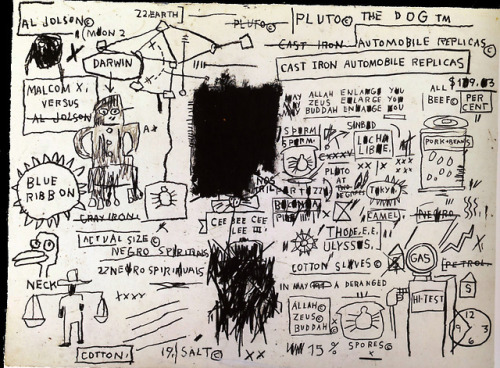 AL JOLSON©
(MOON 2
22. EARTH
PLUTO©
PLUTO© THE DOG TM
CAST IRON AUTOMOBILE REPLICAS©
CAST IRON AUTOMOBILE REPLICAS
DARWIN
MALCOM X,
VERSUS
AL JOLSON
MAY ALLAH ENLARGE YOU
ZEUS ENLARGE YOU
BUDDAH ENLARGE YOU
ALL
BEEF©
PER
CENT.
SPERM
SPERM.
SINBAD
PORK+BEANS
BLUE
RIBBON
PLUTO
AT
TOKYO
GRAY IRON
CEE BEE CEE
LEE III
CAMEL
NEGRO
ACTUAL SIZE©
NEGRO SPIRITUALS
22 NEGRO SPIRITUALS
ULYSSUS,
COTTON SLAVES©
GAS
PETROL
S
NECK
XXXX
IN MAY A DERANGED
ALLAH©
ZEUS©
BUDDAH
HI-TEST
S
12
3
6
9
COTTON
19. SALT©
XX
15 % SPORES©
X